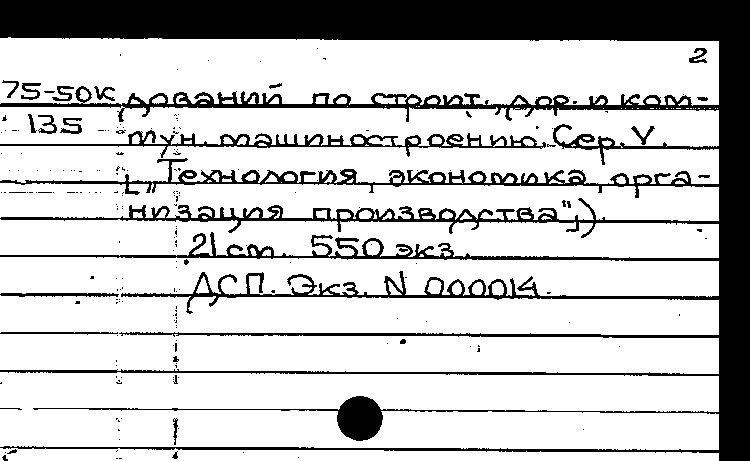 2
75-50к дований по строит., дор. и ком-
135 мун. машиностроению. Сер. V.
[„Технология, экономика, орга-
низация производства"]).
21 см. 550 экз.
ДСП. Экз. N 000014.